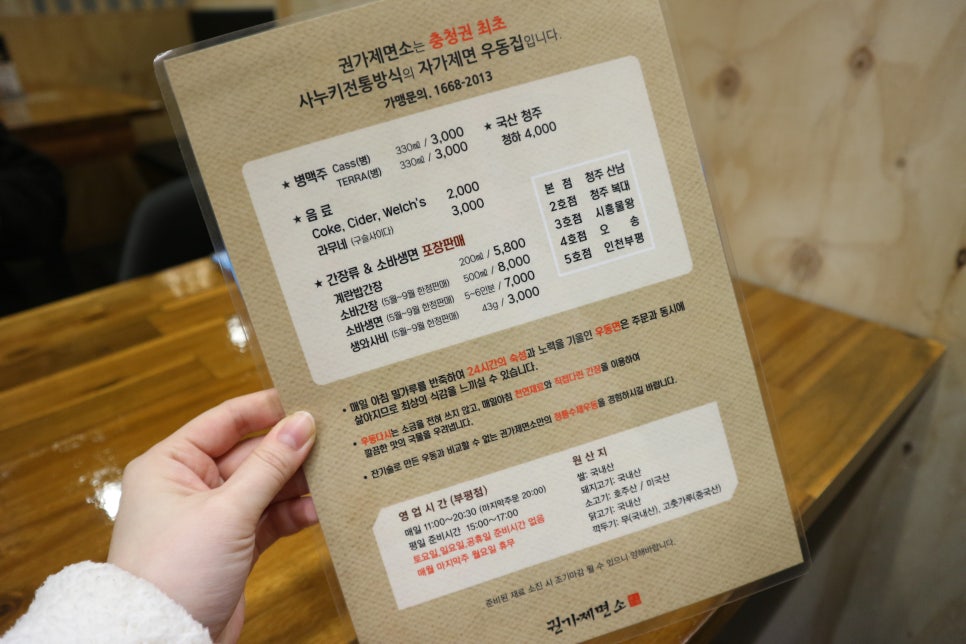 권가제면소는 충청권 최초
사누키전통방식의 자가제면 우동집입니다.
가맹문의. 1668-2013
★ 병맥주 Cass(병) 330㎖ / 3,000
TERRA(병) 330㎖ / 3,000
★ 국산 청주
청하 4,000
★ 음 료
Coke, Cider, Welch's 2,000
라무네 (구슬사이다) 3,000
★ 간장류 & 소바생면 포장판매
계란밥간장 200㎖ / 5,800
소바간장 (5월~9월 한정판매) 500㎖ / 8,000
소바생면 (5월~9월 한정판매) 5~6인분 / 7,000
생와사비 (5월~9월 한정판매) 43g / 3,000
본 점 청주 산남
2호점 청주 복대
3호점 시흥물왕
4호점 오 송
5호점 인천부평
• 매일 아침 밀가루를 반죽하여 24시간의 숙성과 노력을 기울인 우동면은 주문과 동시에
삶아지므로 최상의 식감을 느끼실 수 있습니다.
• 우동다시는 소금을 전혀 쓰지 않고, 매일아침 천연재료와 직접다린 간장을 이용하여
깔끔한 맛의 국물을 우려냅니다.
• 잔기술로 만든 우동과 비교할 수 없는 권가제면소만의 정통수제우동을 경험하시길 바랍니다.
영 업 시 간 (부평점)
매일 11:00~20:30 (마지막주문 20:00)
평일 준비시간 15:00~17:00
토요일,일요일,공휴일 준비시간 없음
매월 마지막주 월요일 휴무
원 산 지
쌀: 국내산
돼지고기: 국내산
소고기: 호주산 / 미국산
닭고기: 국내산
깍두기: 무(국내산), 고춧가루(중국산)
준비된 재료 소진 시 조기마감 될 수 있으니 양해바랍니다.
권가제면소